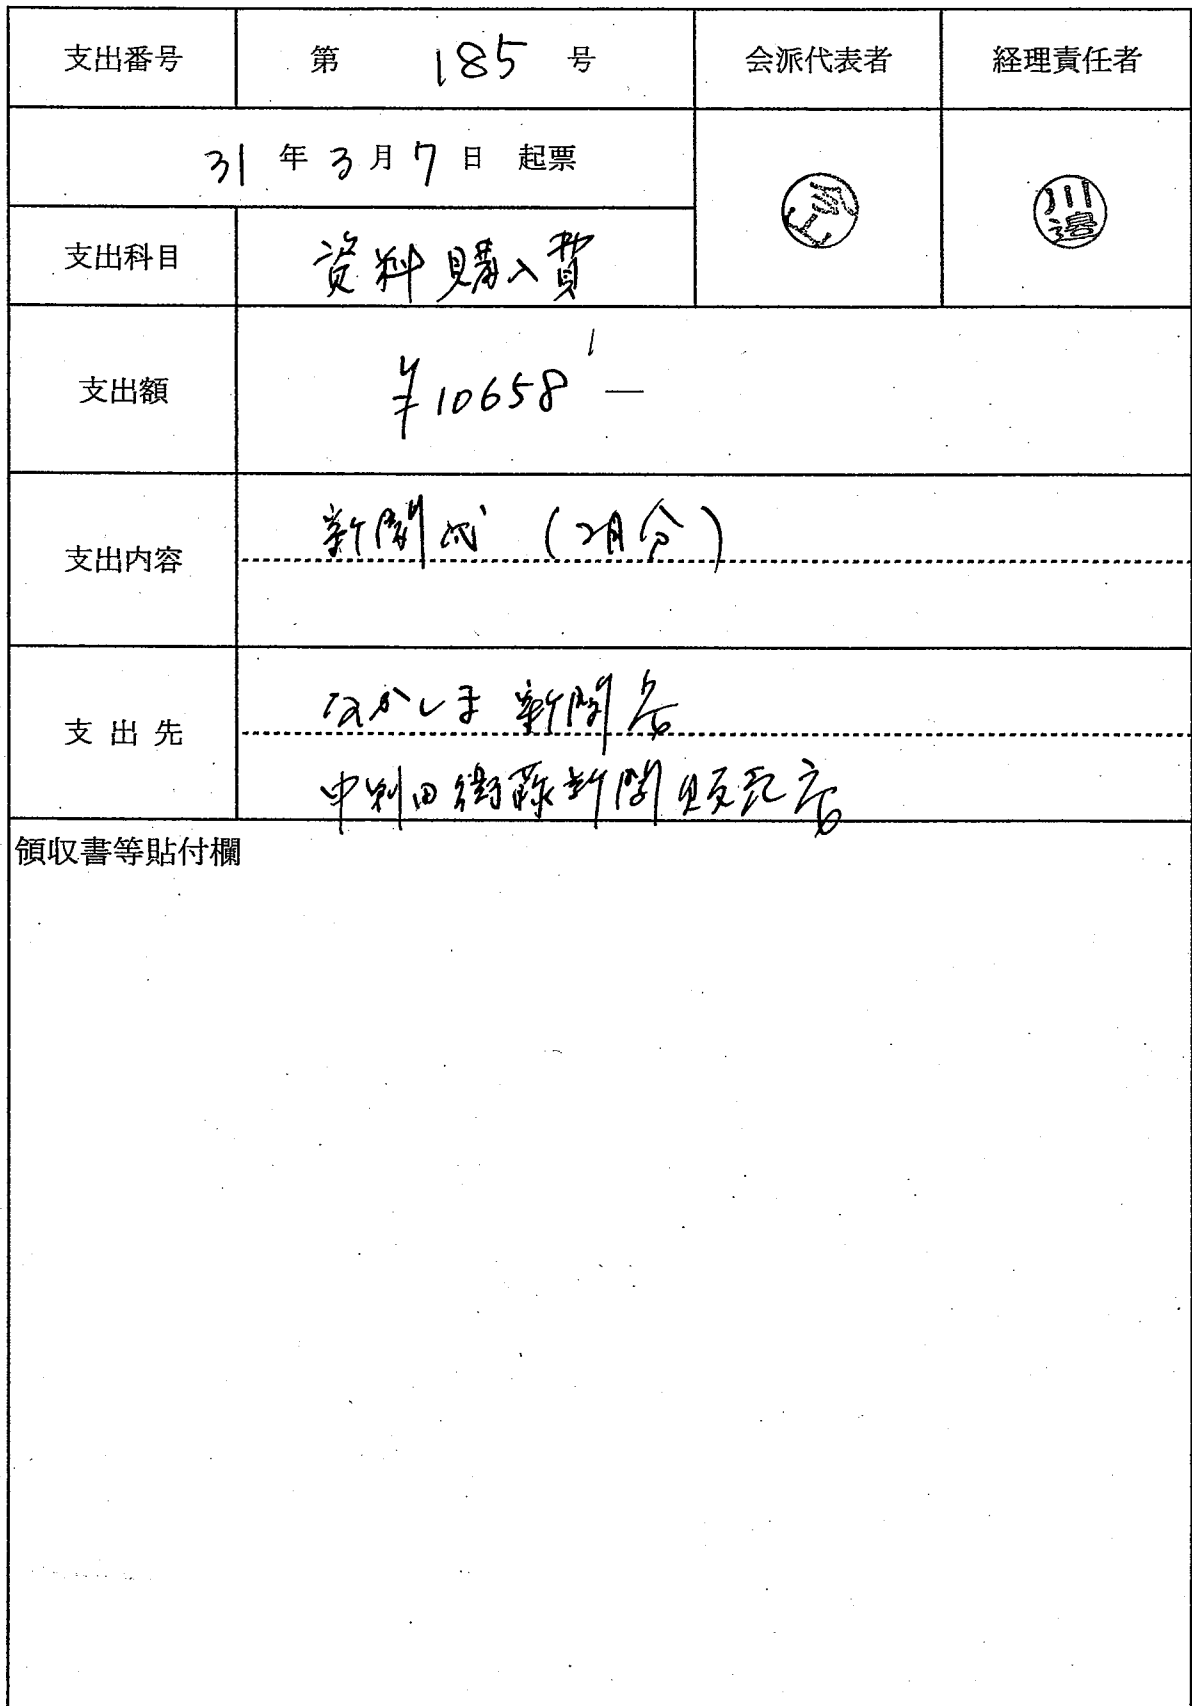 支出番号 第 185 号 会派代表者 経理責任者
31 年 3 月 7 日 起票
川邉
支出科目 資料購入費
支出額 ¥10658 —
支出内容 新聞代 (2月分)
支出先 なかしま新聞店
中判田衛藤新聞販売店
領収書等貼付欄